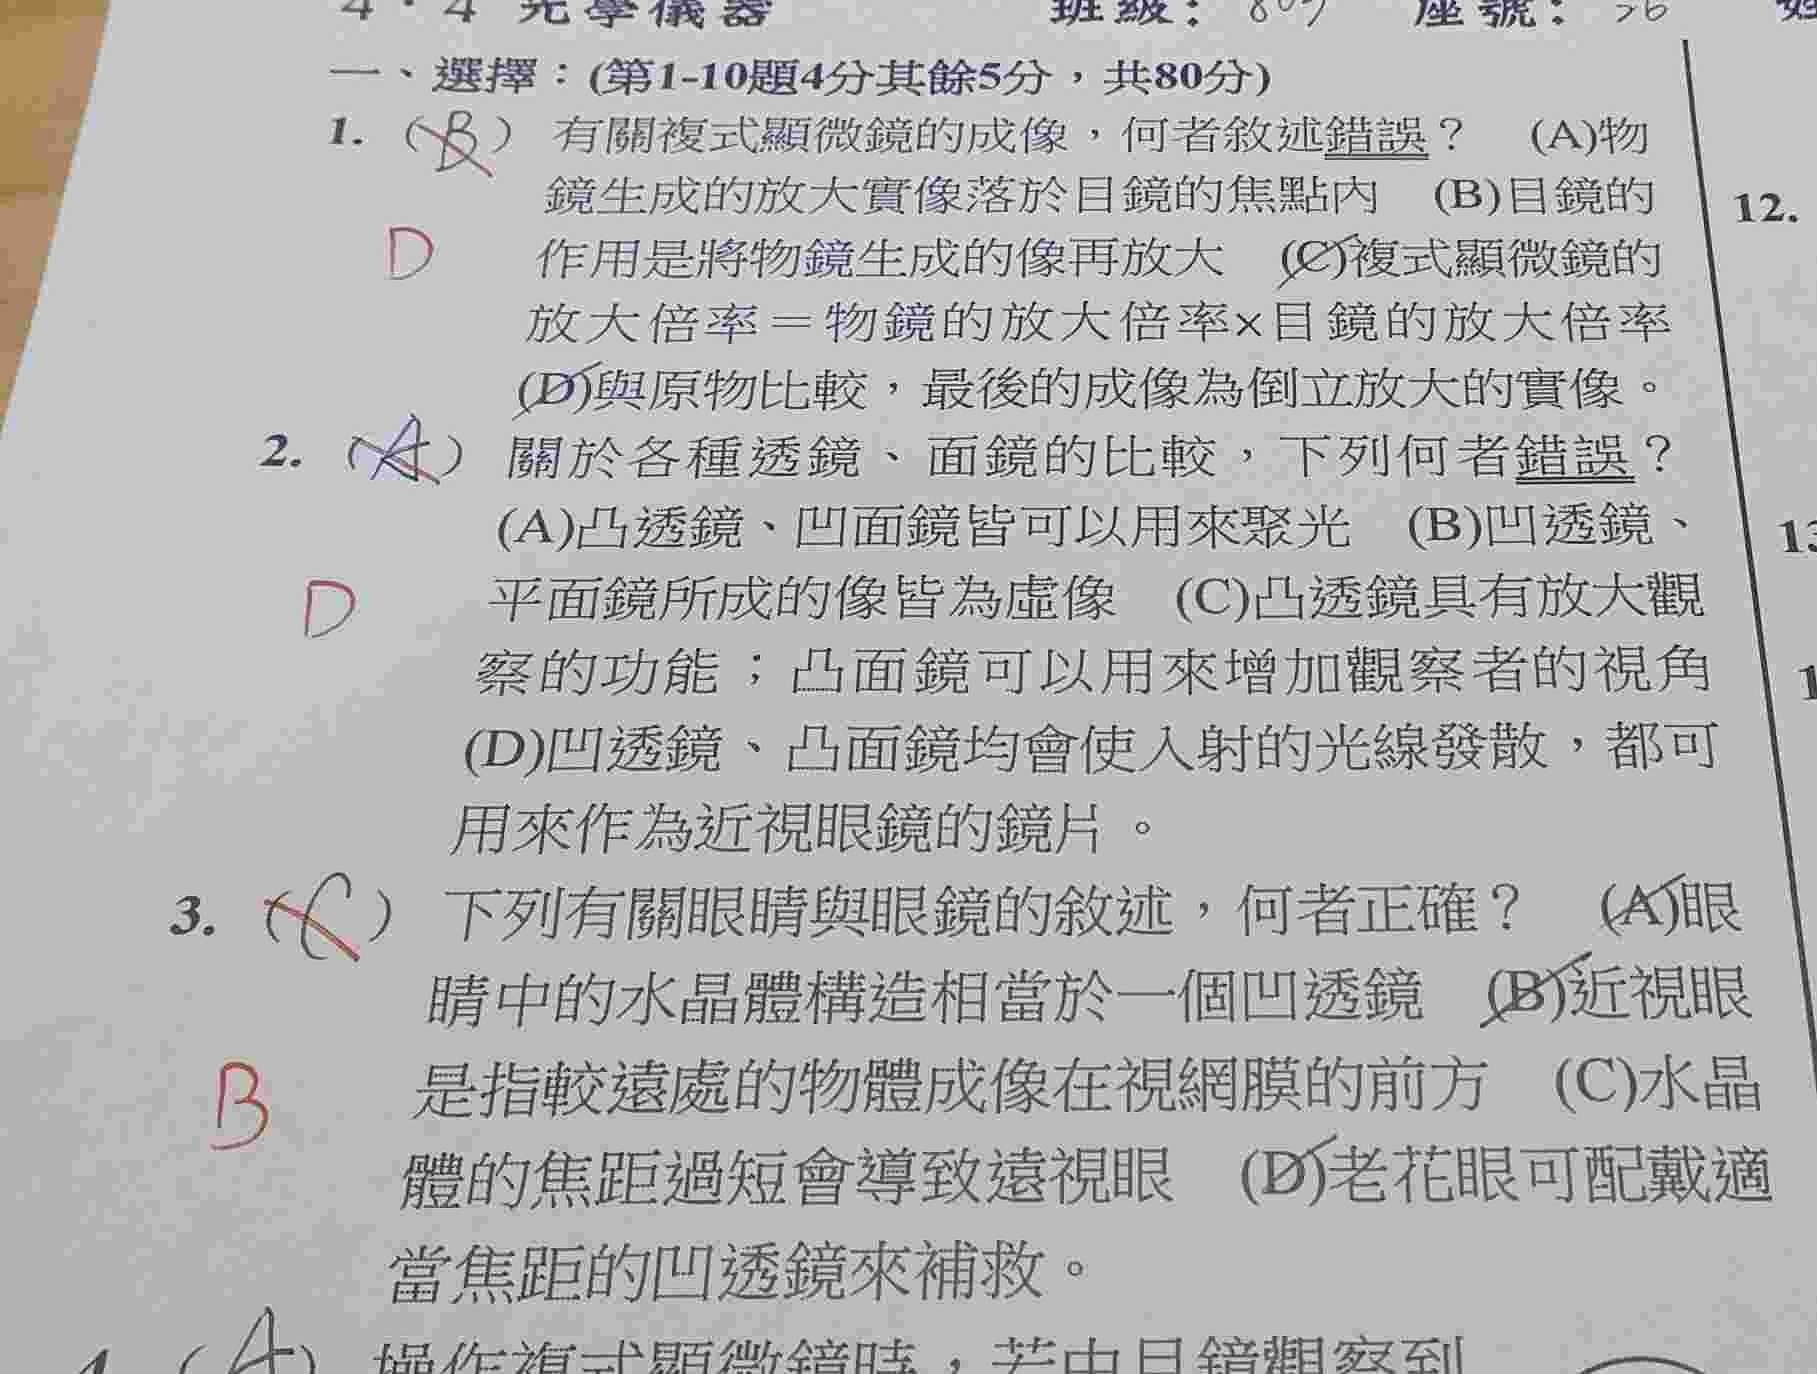 4‧4 光學儀器 班級： 座號：
一、選擇：(第1-10題4分其餘5分，共80分)
1. (B) 有關複式顯微鏡的成像，何者敘述錯誤？ (A)物
鏡生成的放大實像落於目鏡的焦點內 (B)目鏡的
D
作用是將物鏡生成的像再放大 (C)複式顯微鏡的
放大倍率＝物鏡的放大倍率×目鏡的放大倍率
(D)與原物比較，最後的成像為倒立放大的實像。
2. (A) 關於各種透鏡、面鏡的比較，下列何者錯誤？
(A)凸透鏡、凹面鏡皆可以用來聚光 (B)凹透鏡、
D
平面鏡所成的像皆為虛像 (C)凸透鏡具有放大觀
察的功能；凸面鏡可以用來增加觀察者的視角
(D)凹透鏡、凸面鏡均會使入射的光線發散，都可
用來作為近視眼鏡的鏡片。
3. (C) 下列有關眼睛與眼鏡的敘述，何者正確？ (A)眼
睛中的水晶體構造相當於一個凹透鏡 (B)近視眼
B
是指較遠處的物體成像在視網膜的前方 (C)水晶
體的焦距過短會導致遠視眼 (D)老花眼可配戴適
當焦距的凹透鏡來補救。
(A) 操作複式顯微鏡時，若由目鏡觀察到
12.